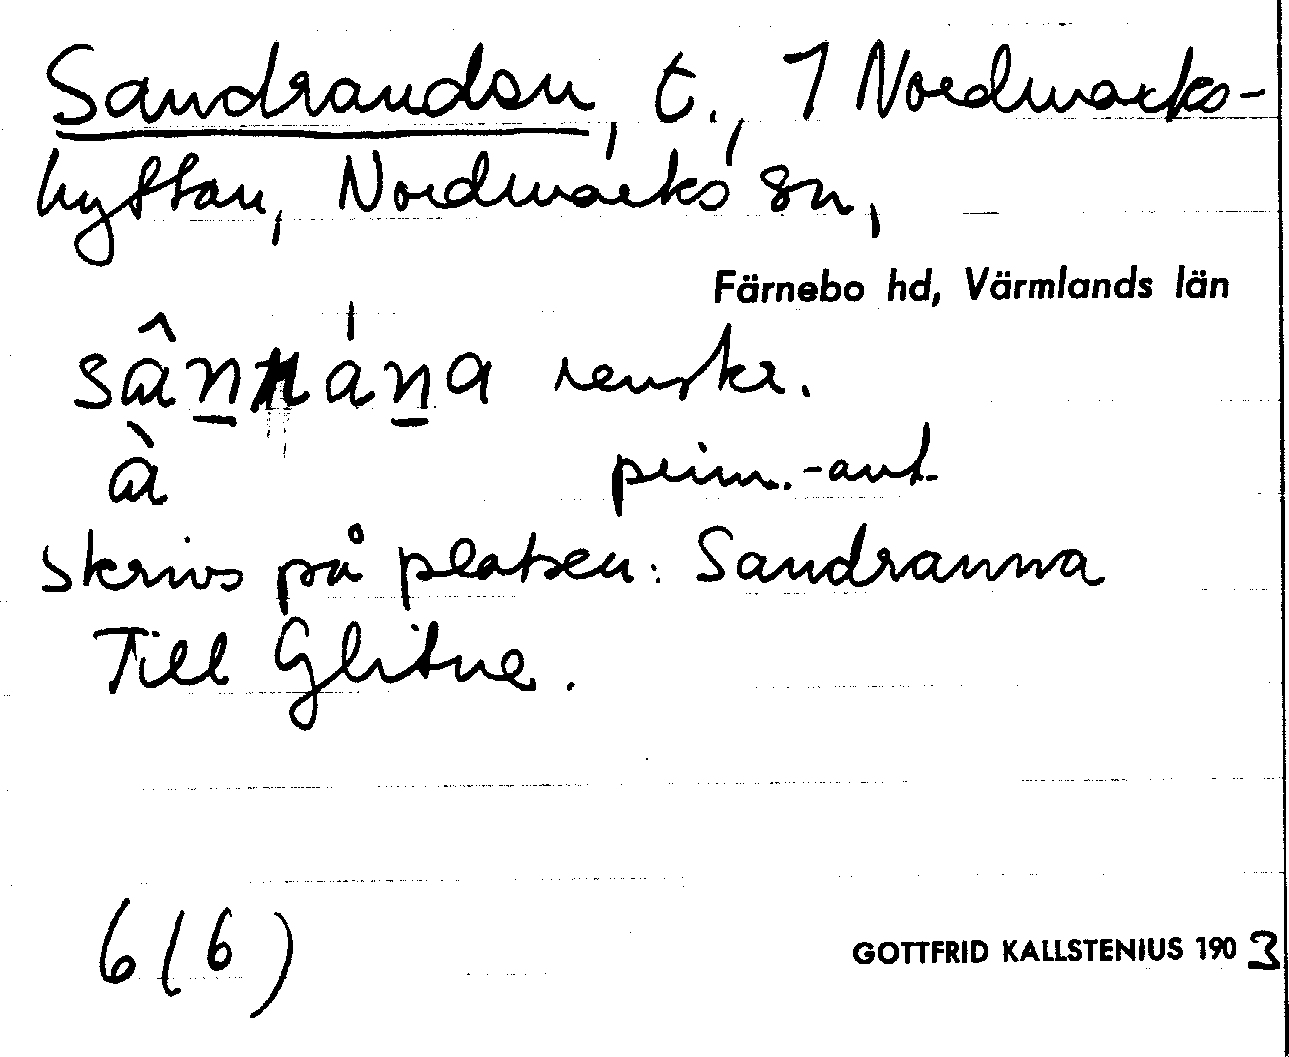 Sandrandsn, t., 1 Nordmarks-
hyttan, Nordmarks sn,
Färnebo hd, Värmlands län
renskr.
à prim.-ant.
skrivs på platsen: Sandranna
Till Glitne.
6 (6)
GOTTFRID KALLSTENIUS 1903